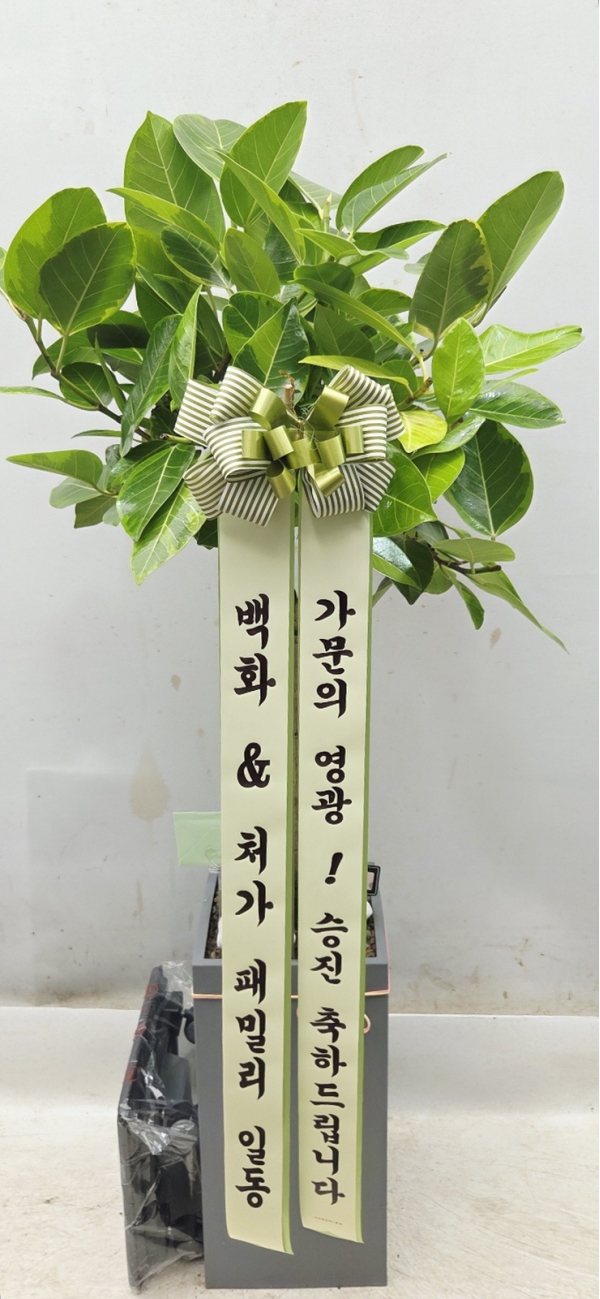 가문의 영광 ! 승진 축하드립니다
백화 & 처가 패밀리 일동